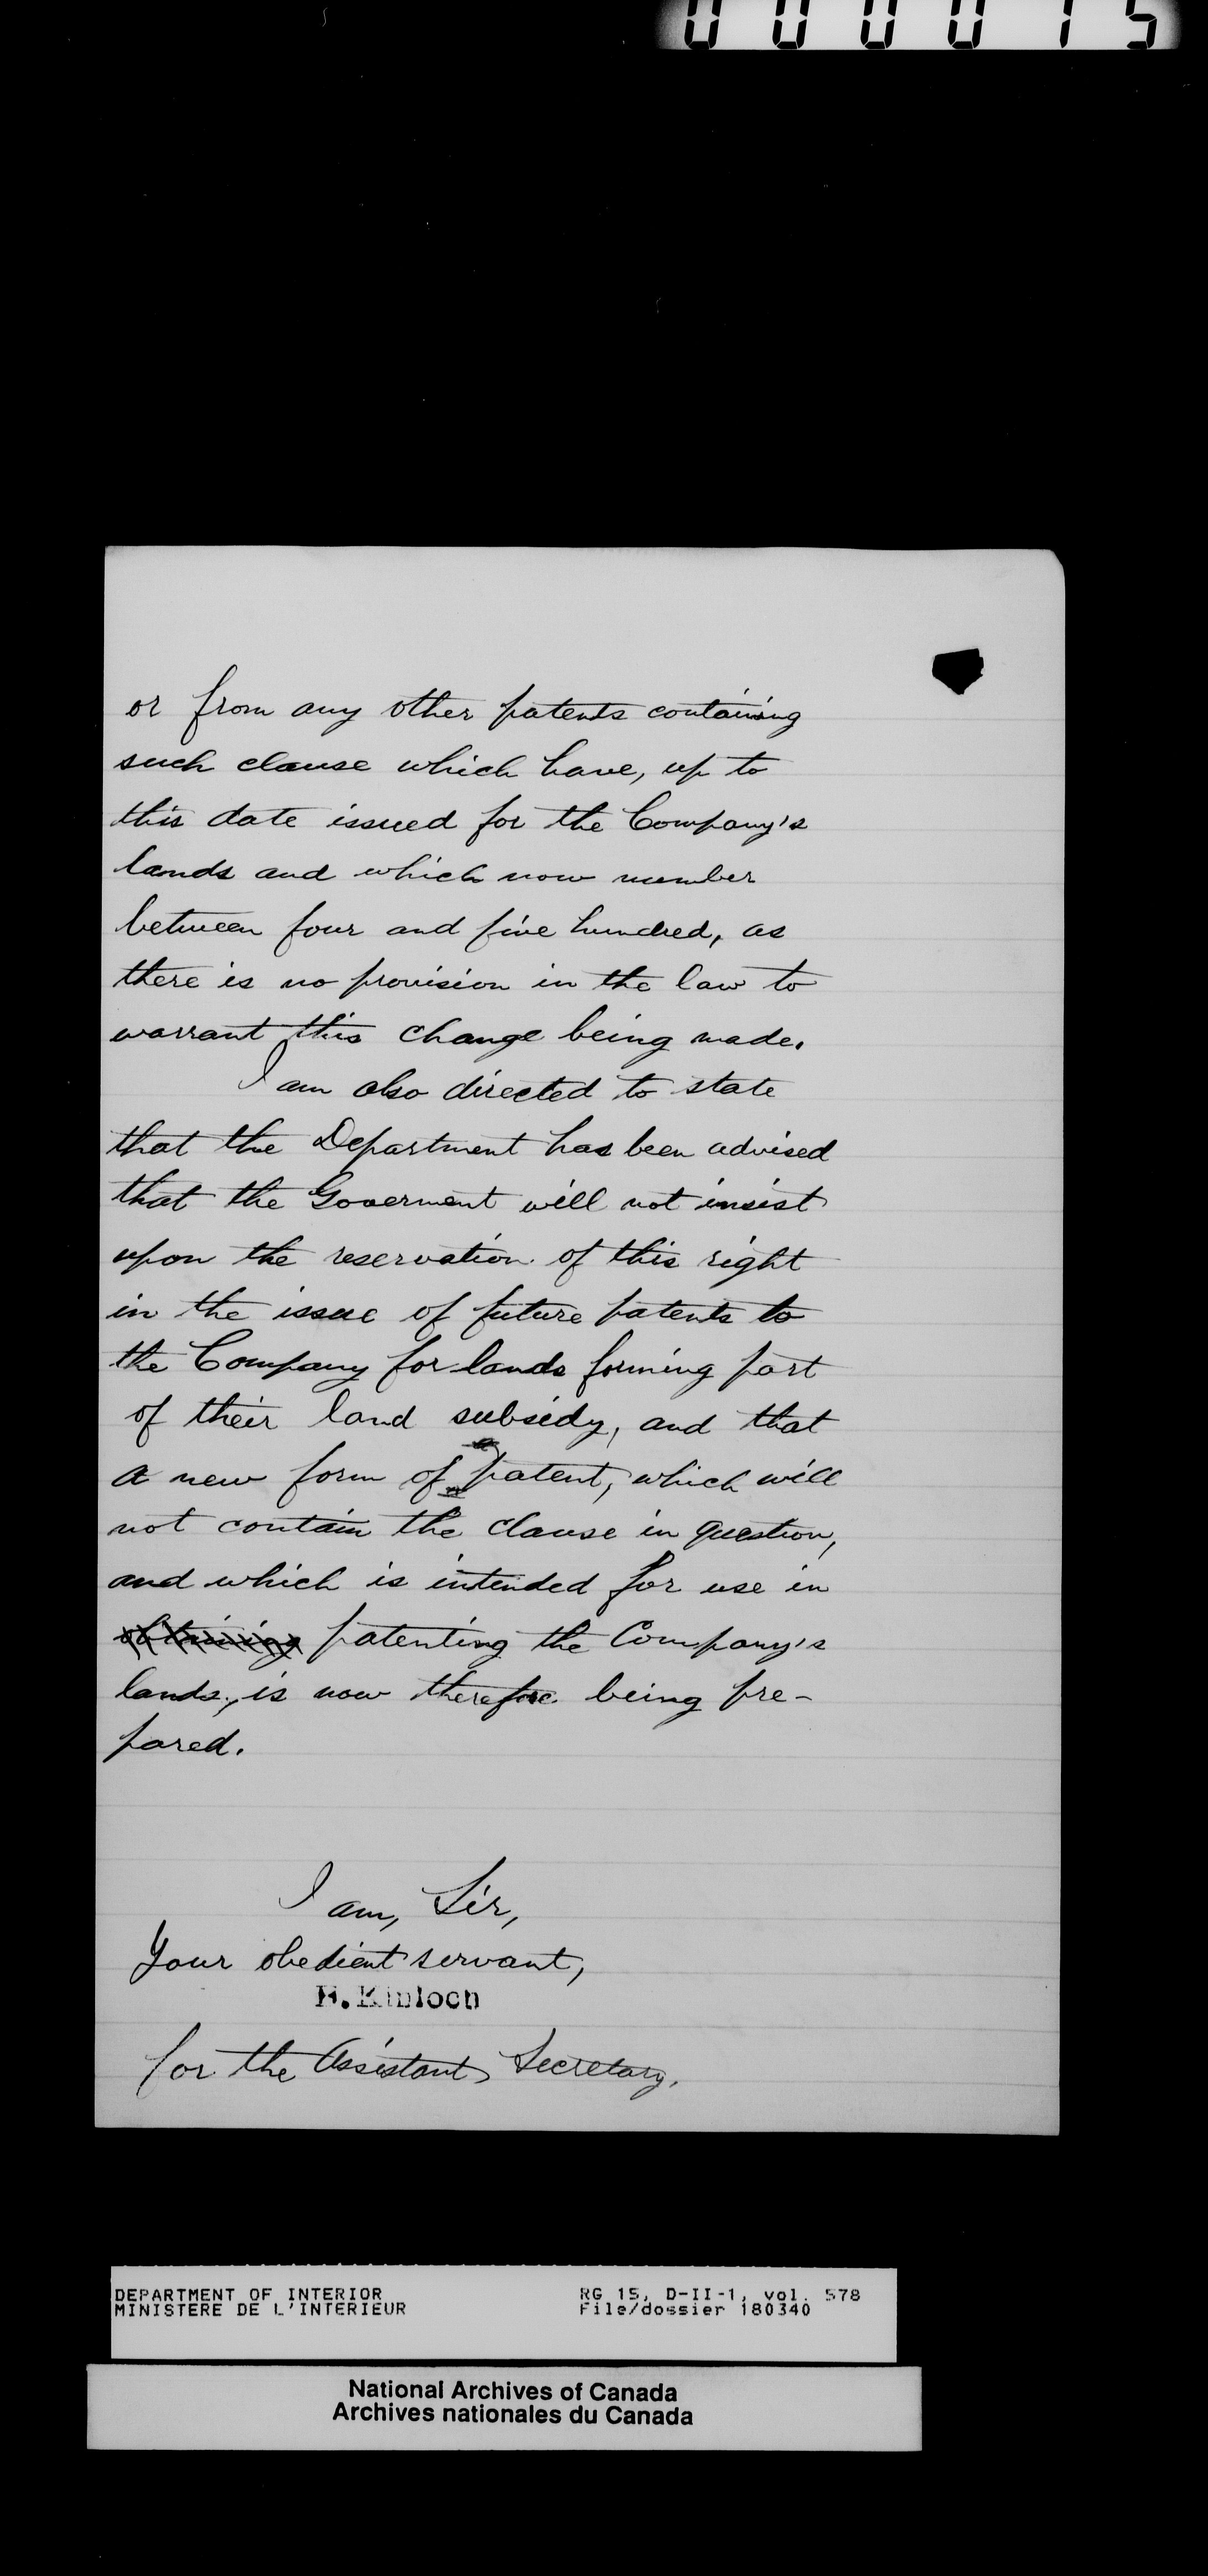 000015
or from any other patents containing
such clause which have, up to
this date issued for the Company's
lands and which now number
between four and five hundred, as
there is no provision in the law to
warrant this change being made.
I am also directed to state
that the Department has been advised
that the Goverment will not insist
upon the reservation of this right
in the issue of future patents to
the Company for lands forming part
of their land subsidy, and that
a new form of patent, which will
not contain the clause in question,
and which is intended for use in
obtaining patenting the Company's
lands, is now therefore being pre-
pared.
I am, Sir,
Your obedient servant,
H. Kinloch
for the Assistant Secretary.
DEPARTMENT OF INTERIOR RG 15, D-II-1, vol. 578
MINISTERE DE L'INTERIEUR File/dossier 180340
National Archives of Canada
Archives nationales du Canada